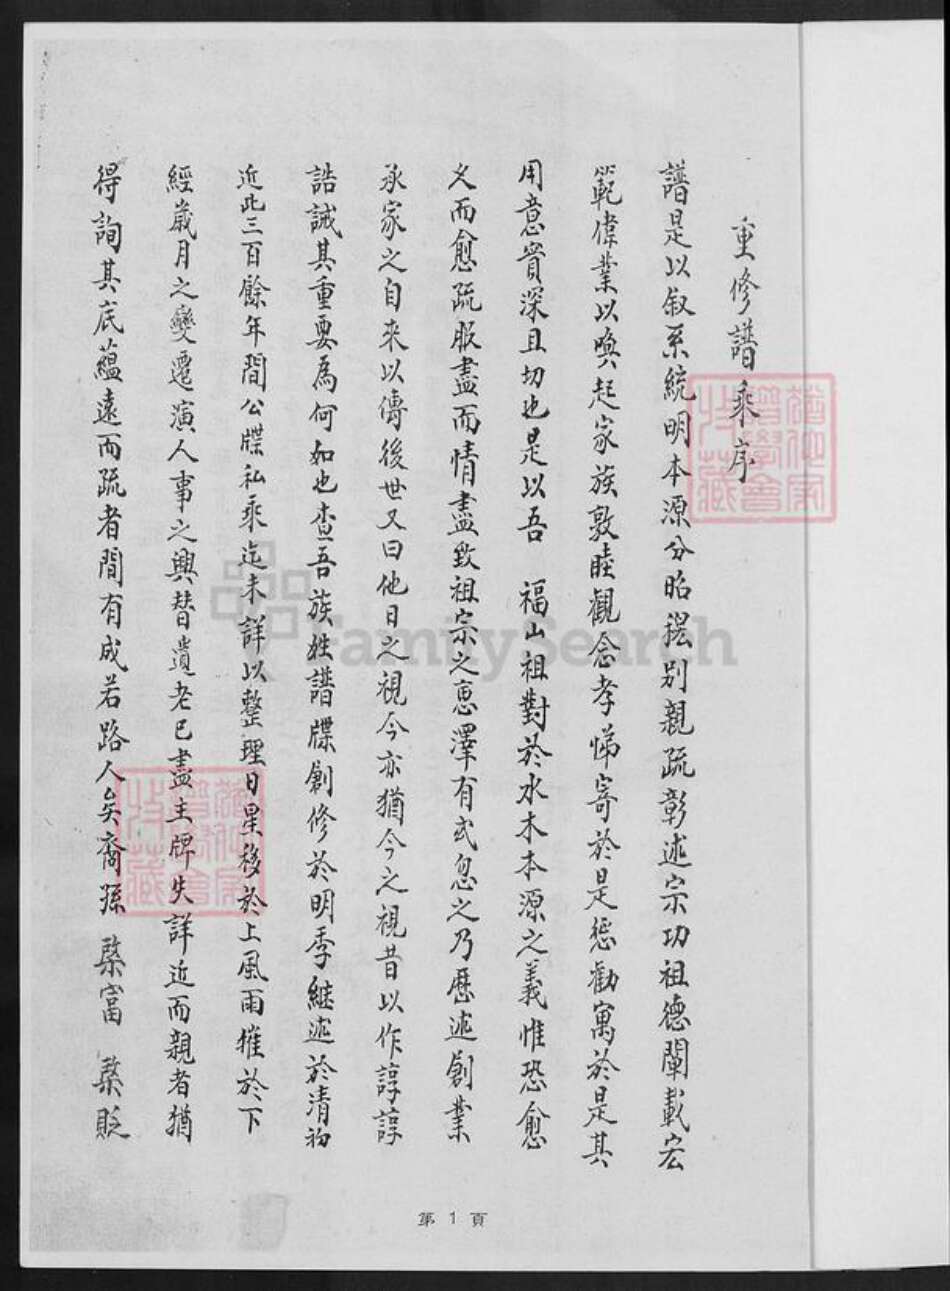 重修譜乘序
譜是以叙系統明本源分昭穆别親疏彰述宗功祖德闡載宏
範偉業以喚起家族敦睦觀念孝悌寄於是惩勸寓於是其
用意實深且切也是以吾 福山祖對於水木本源之義惟恐愈
久而愈疏服盡而情盡致祖宗之恩澤有式忽之乃歷述創業
承家之自来以傳後世又曰他日之視今亦猶今之視昔以作諄諄
誥誡其重要為何如也查吾族姓譜牒創修於明季継述於清初
近此三百餘年間公牒私乘迄未詳以整理日星移於上風雨摧於下
經歲月之變遷演人事之興替遺老已盡主牌失詳近而親者猶
得詢其底蘊遠而疏者間有成若路人矣裔孫 棨富 棨貶
第1頁
FamilySearch